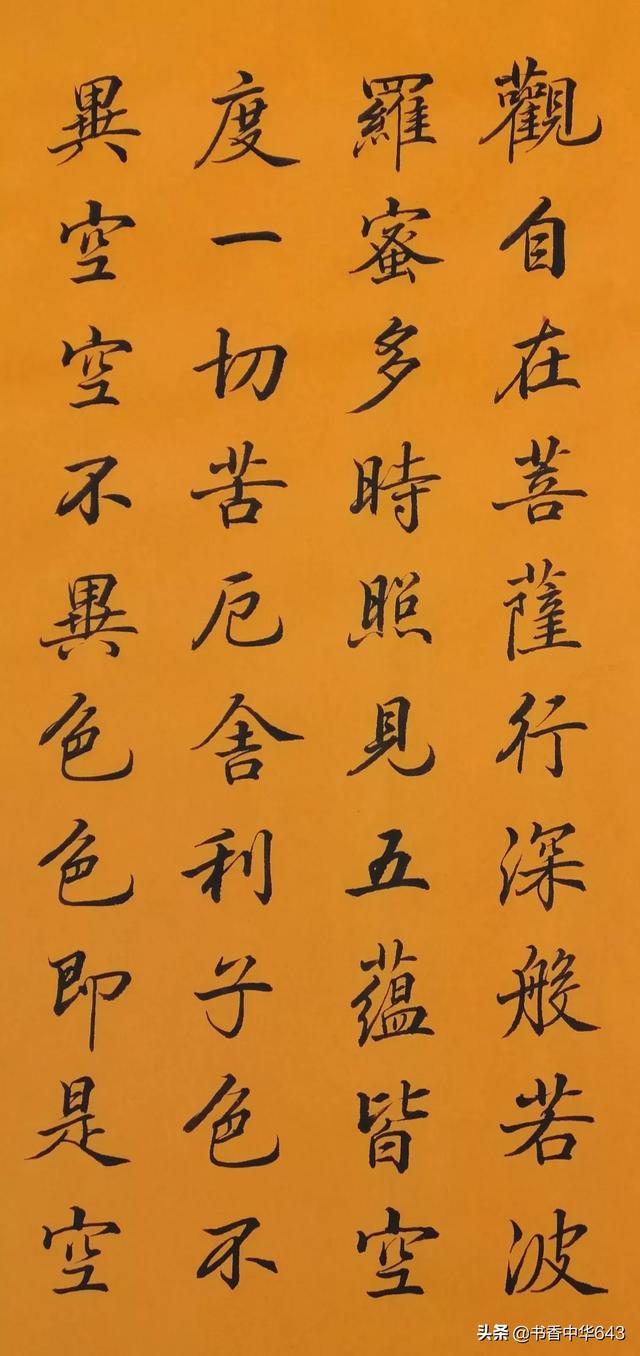 觀自在菩薩行深般若波
羅蜜多時照見五蘊皆空
度一切苦厄舍利子色不
異空空不異色色即是空
头条 @书香中华643